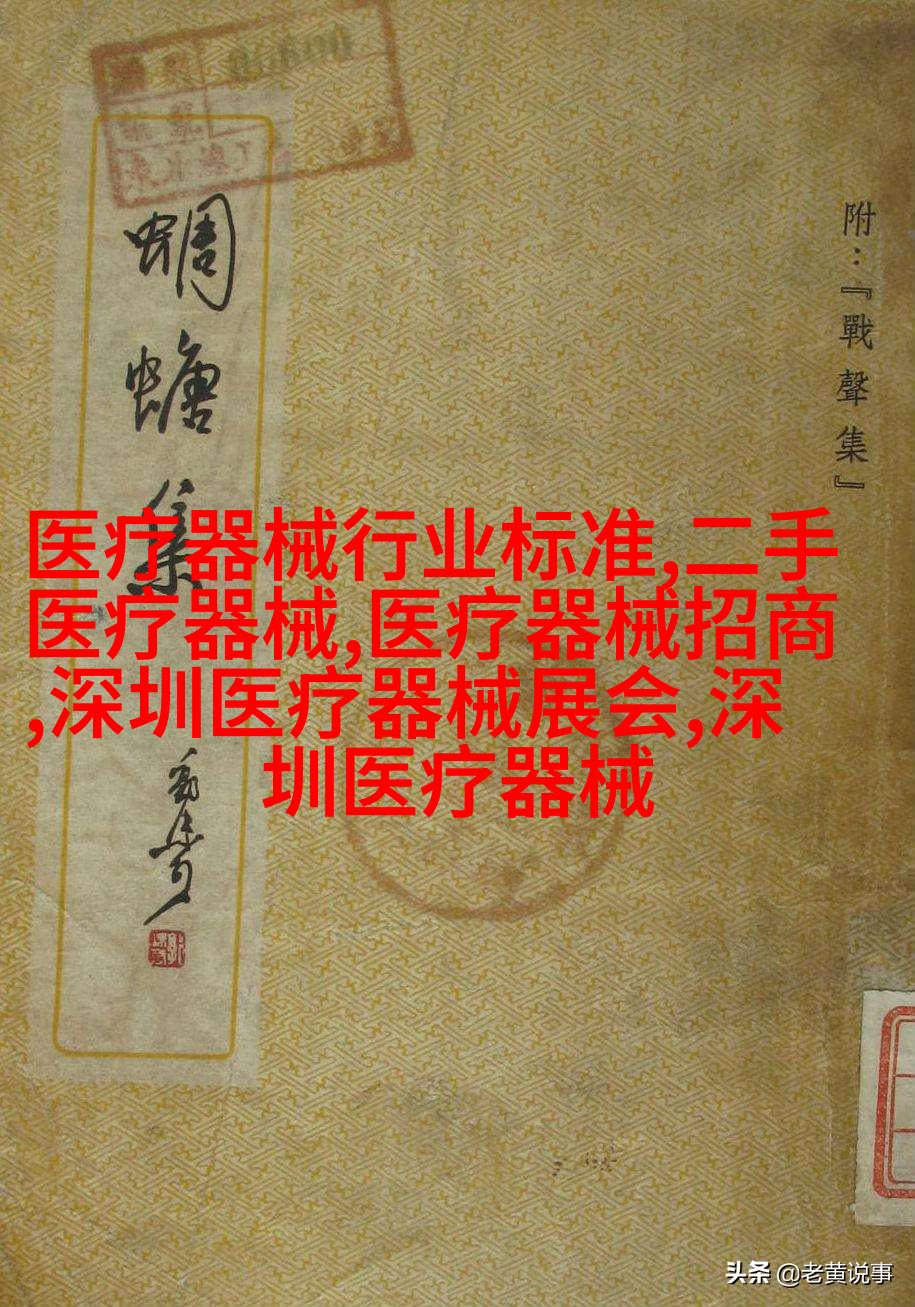 附：『戰聲集』
蜩螗集
医疗器械行业标准,二手
医疗器械,医疗器械招商
,深圳医疗器械展会,深
圳医疗器械
头条 @老黄说事